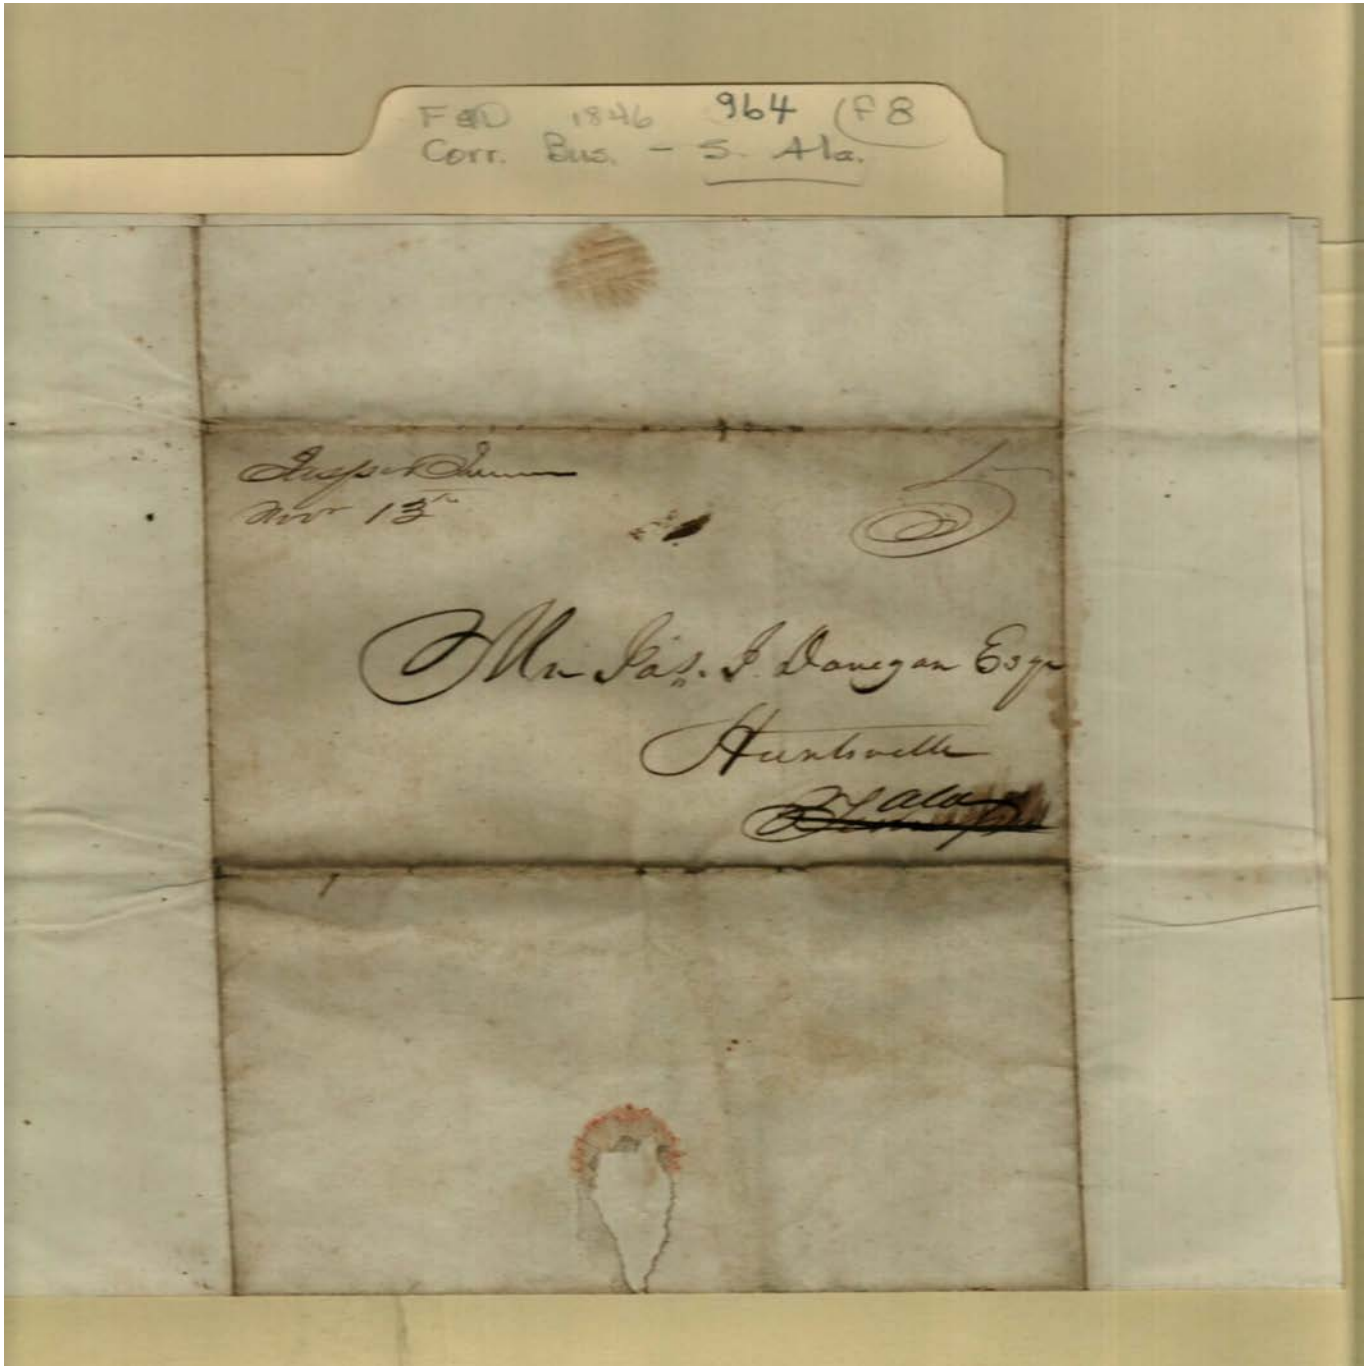 F&D 1846 964 (F8
Corr. Bus. - S. Ala.
Jasper Tenn
Nov 13th
5
Mr Jas. J. Donegan Esqr
Huntsville
Ala